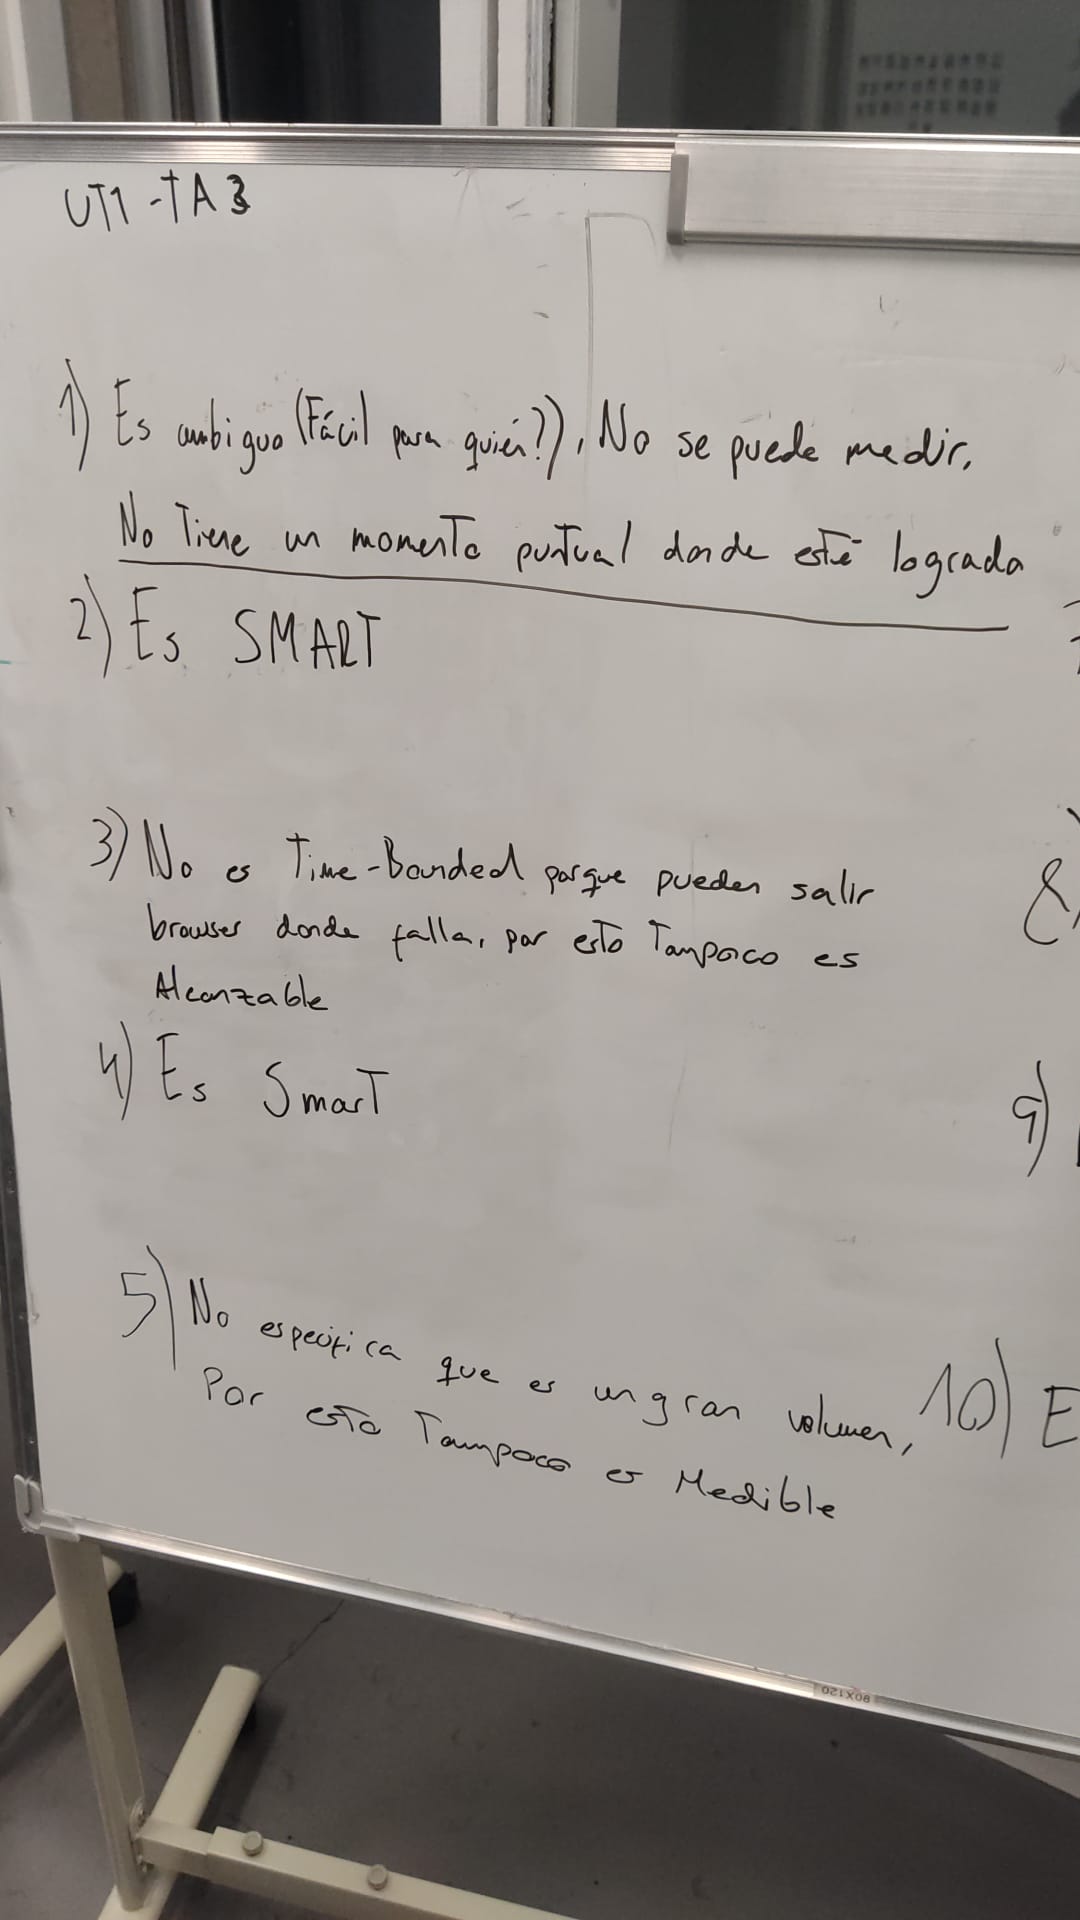 UT1-TA3
1) Es ambiguo (Fácil para quién?)), No se puede medir.
No Tiene un momento puntual donde esté lograda
2) Es SMART
3) No es Time-Bounded porque pueden salir
browser donde falla, por esto Tampoco es
Alcanzable
4) Es SmarT
5) No especifica que es un gran volumen,
Por esto Tampoco es Medible
8)
9)
10) E
80X120